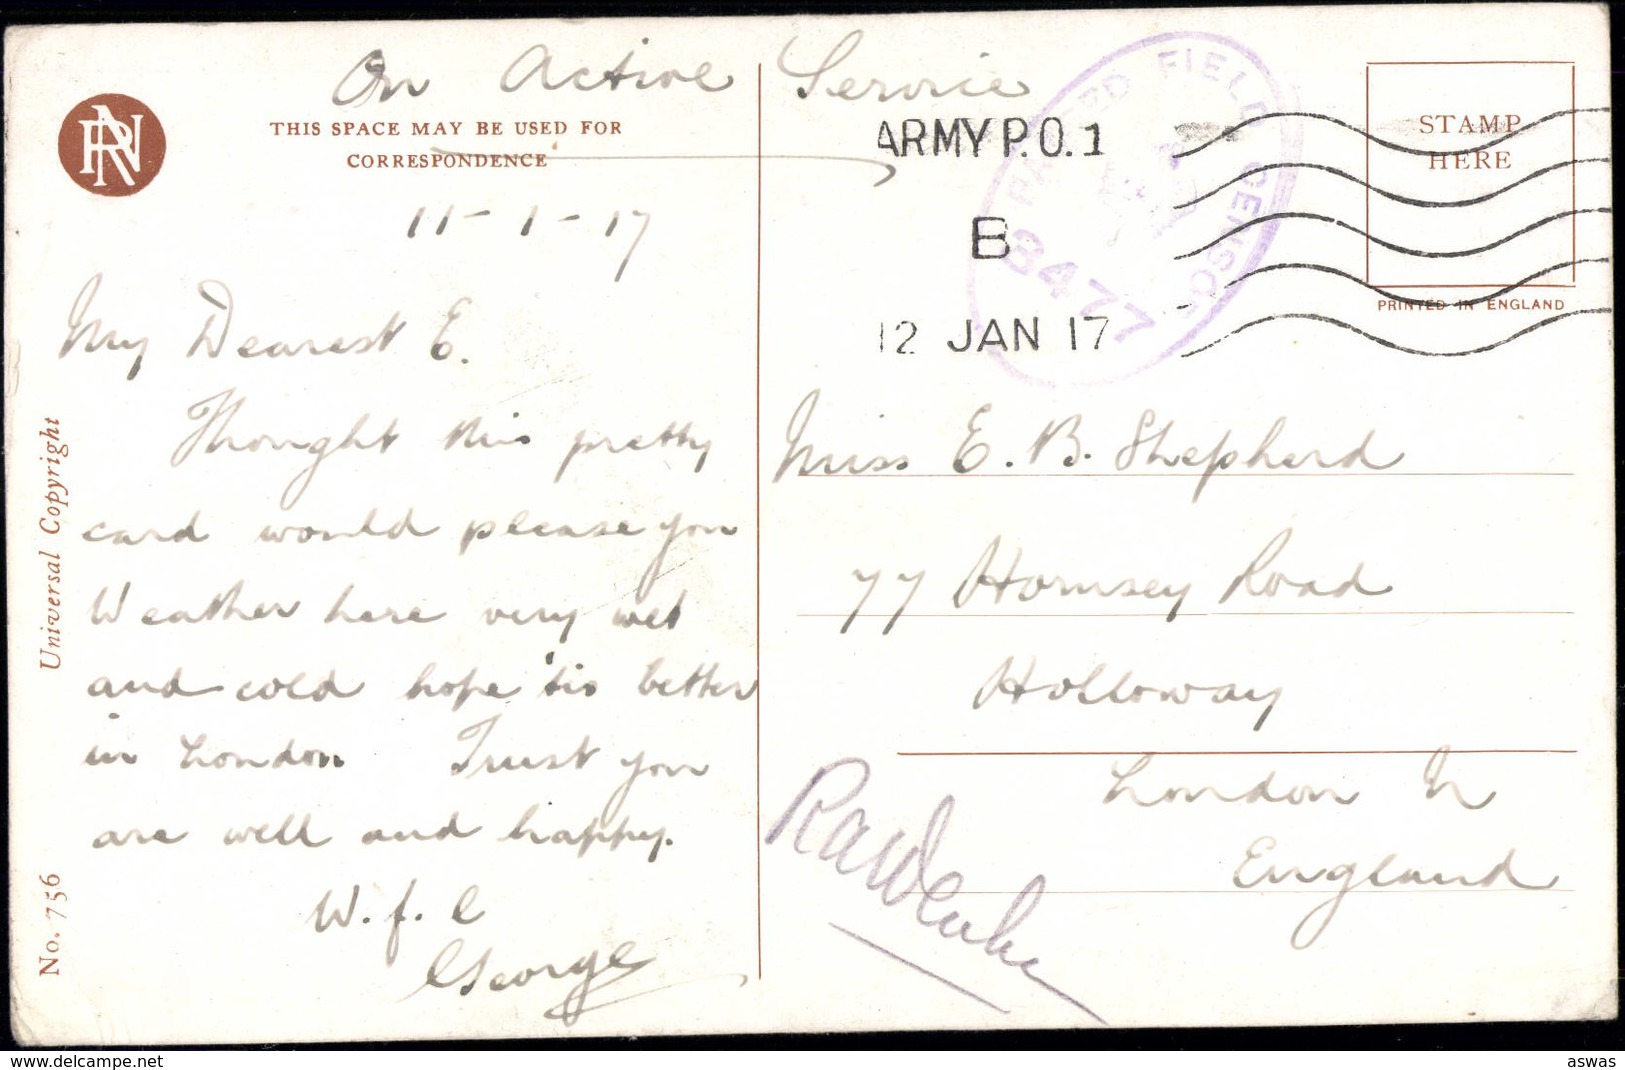 On Active Service
THIS SPACE MAY BE USED FOR
CORRESPONDENCE
11-1-17
My Dearest E.
Thought this pretty
card would please you
Weather here very wet
and cold hope 'tis better
in London Trust you
are well and happy.
W.f.l
George
Universal Copyright
No. 756
ARMY P.O.1
B
12 JAN 17
PASSED FIELD CENSOR
3477
STAMP
HERE
PRINTED IN ENGLAND
Miss E. B. Shepherd
77 Hornsey Road
Holloway
London N
England
www.delcampe.net
aswas